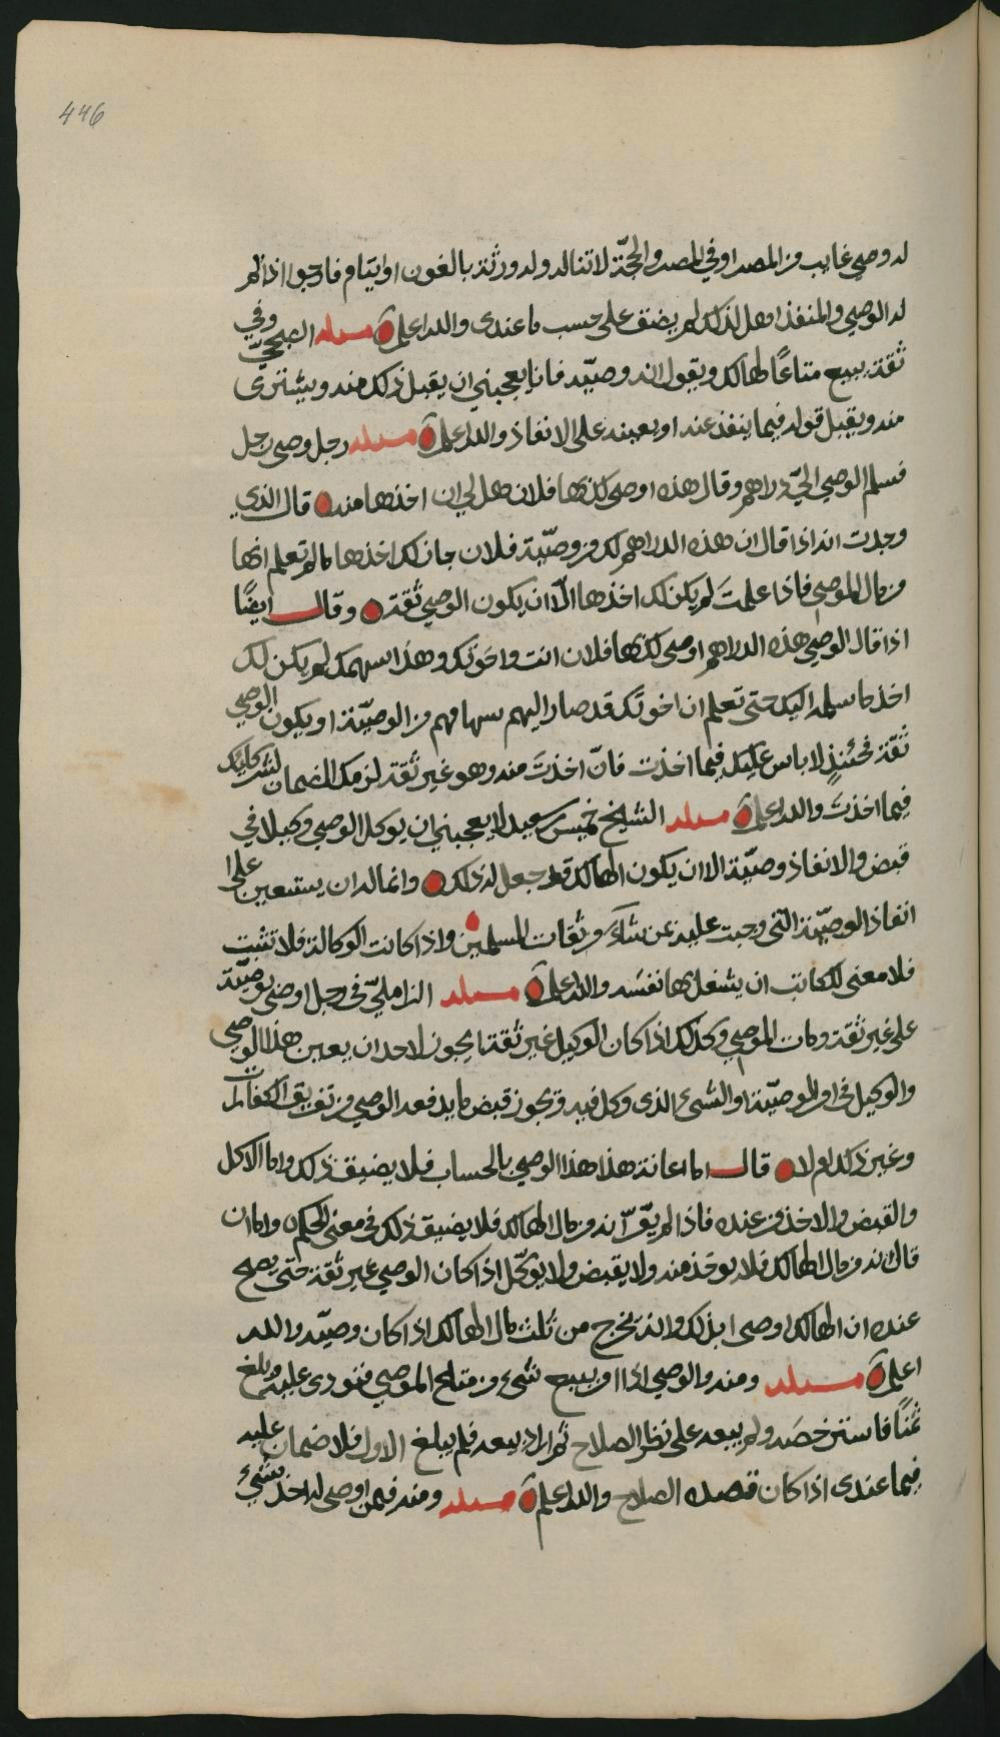 446
له وصي غايب من المصر او في المصر والحجّة لا تناله وله ورثة بالغون او ايتام فاوجبوا اذا لم
له الوصي والمنفذ اهل لذلك لم يضق على حسب ما عندى والله اعلم مسئله الصبحيّ وفي
ثقة يبيع متاعًا لهالك ويقول انه وصيّه فانا يعجبني ان يقبل ذلك منه ويشترى
منه ويقبل قوله فيما ينفذ عنه او يعينه على الانفاذ والله اعلم مسئله رجل وصي رجل
فسلم الوصي اليّ دراهم وقال هذه اوصى لك بها فلان هل لي ان اخذها منه قال الذي
وجدت انه اذا قال ان هذه الدراهم لك من وصيّة فلان جاز لك اخذها ما لم تعلم انها
من مال الموصي فاذا علمتَ لم يكن لك اخذها الّا ان يكون الوصي ثقة وقال ايضًا
اذا قال الوصي هذه الدراهم اوصى لك بها فلان انت واخوتك وهذا سهمك لم يكن لك
اخذ ما سلمه اليك حتى تعلم ان اخوتك قد صار اليهم سهامهم من الوصيّة او يكون الوصي
ثقّة فحينئذٍ لا باس عليك فيما اخذت فانّ اخذتَ منه وهو غير ثقة لزمك الضمان لشركايك
فيما اخذتَ والله اعلم مسئله الشيخ خميس بن سعيد لا يعجبني ان يوكل الوصي وكيلا في
قبض والانفاذ وصيّة الا ان يكون الهالك قد جعل له ذلك وانما له ان يستعين على
انفاذ الوصيّة التى وجبت عليه بمن شآء من ثقات المسلمين واذا كانت الوكالة فلا تثبت
فلا معنى للكاتب ان يشغل بها نفسَه والله اعلم مسئله الزامليّ في رجل اوصى بوصيّة
على غير ثقة ومات الموصي وكذلك اذا كان الوكيل غير ثقة ايجوز لاحد ان يعين هذا الوصي
والوكيل في امر الوصيّة او الشيء الذى وكل فيه ويجوز قبض ما يدفعه الوصي من تفريق الكفارات
وغير ذلك ام لا قال اما اعانة هذا هذا الوصي بالحساب فلا يضيق ذلك واما الاكل
والقبض والاخذ من عنده فاذا لم يقرّ انه من مال الهالك فلا يضيق ذلك في معنى الحكم واما ان
قال انه من مال الهالك فلا يوخذ منه ولا يقبض ولا يوكل اذا كان الوصي غير ثقة حتى يصح
عنده ان الهالك اوصى بذلك وانه يخرج من ثلث مال الهالك اذا كان وصيّه والله
اعلم مسئله ومنه والوصي اذا امر ببيع شيء من متاع الموصي فنودى عليه وبلغ
ثمنًا فاسترخصَه ولم يبعه على نظر الصلاح ثم اراد بيعه فلم يبلغ الاول فلا ضمان عليه
فيما عندى اذا كان قصده الصلاح والله اعلم مسئله ومنه فيمن اوصى له احد بشيء